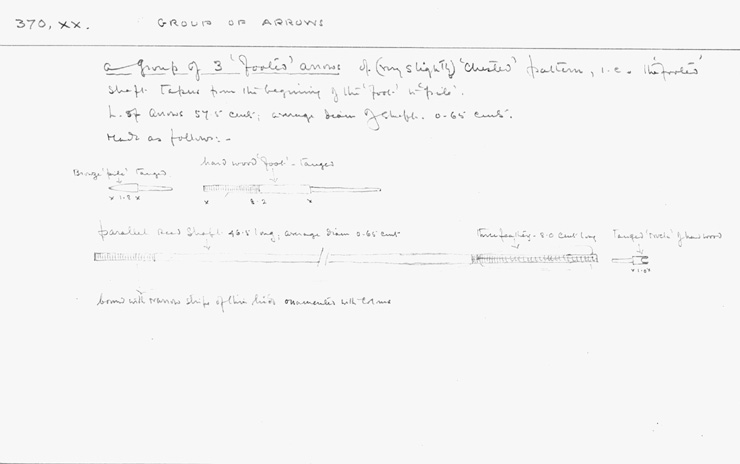 370, XX. GROUP OF ARROWS
a group of 3 'footed' arrows of (very slightly) 'chested' pattern, i.e. the 'footed'
shaft tapers from the beginning of the 'foot' to 'pile'.
L. of arrows 57.5 cents; average diam of shaft. 0.65 cents.
Made as follows:-
hard wood 'foot' - tanged
Bronze 'pile' tanged
x 1.8 x
x 8.2 x
parallel reed shaft long; average diam 0.65 cent
8.0 cent long
tanged of hard wood
bound with narrow strips of thin ornamented with